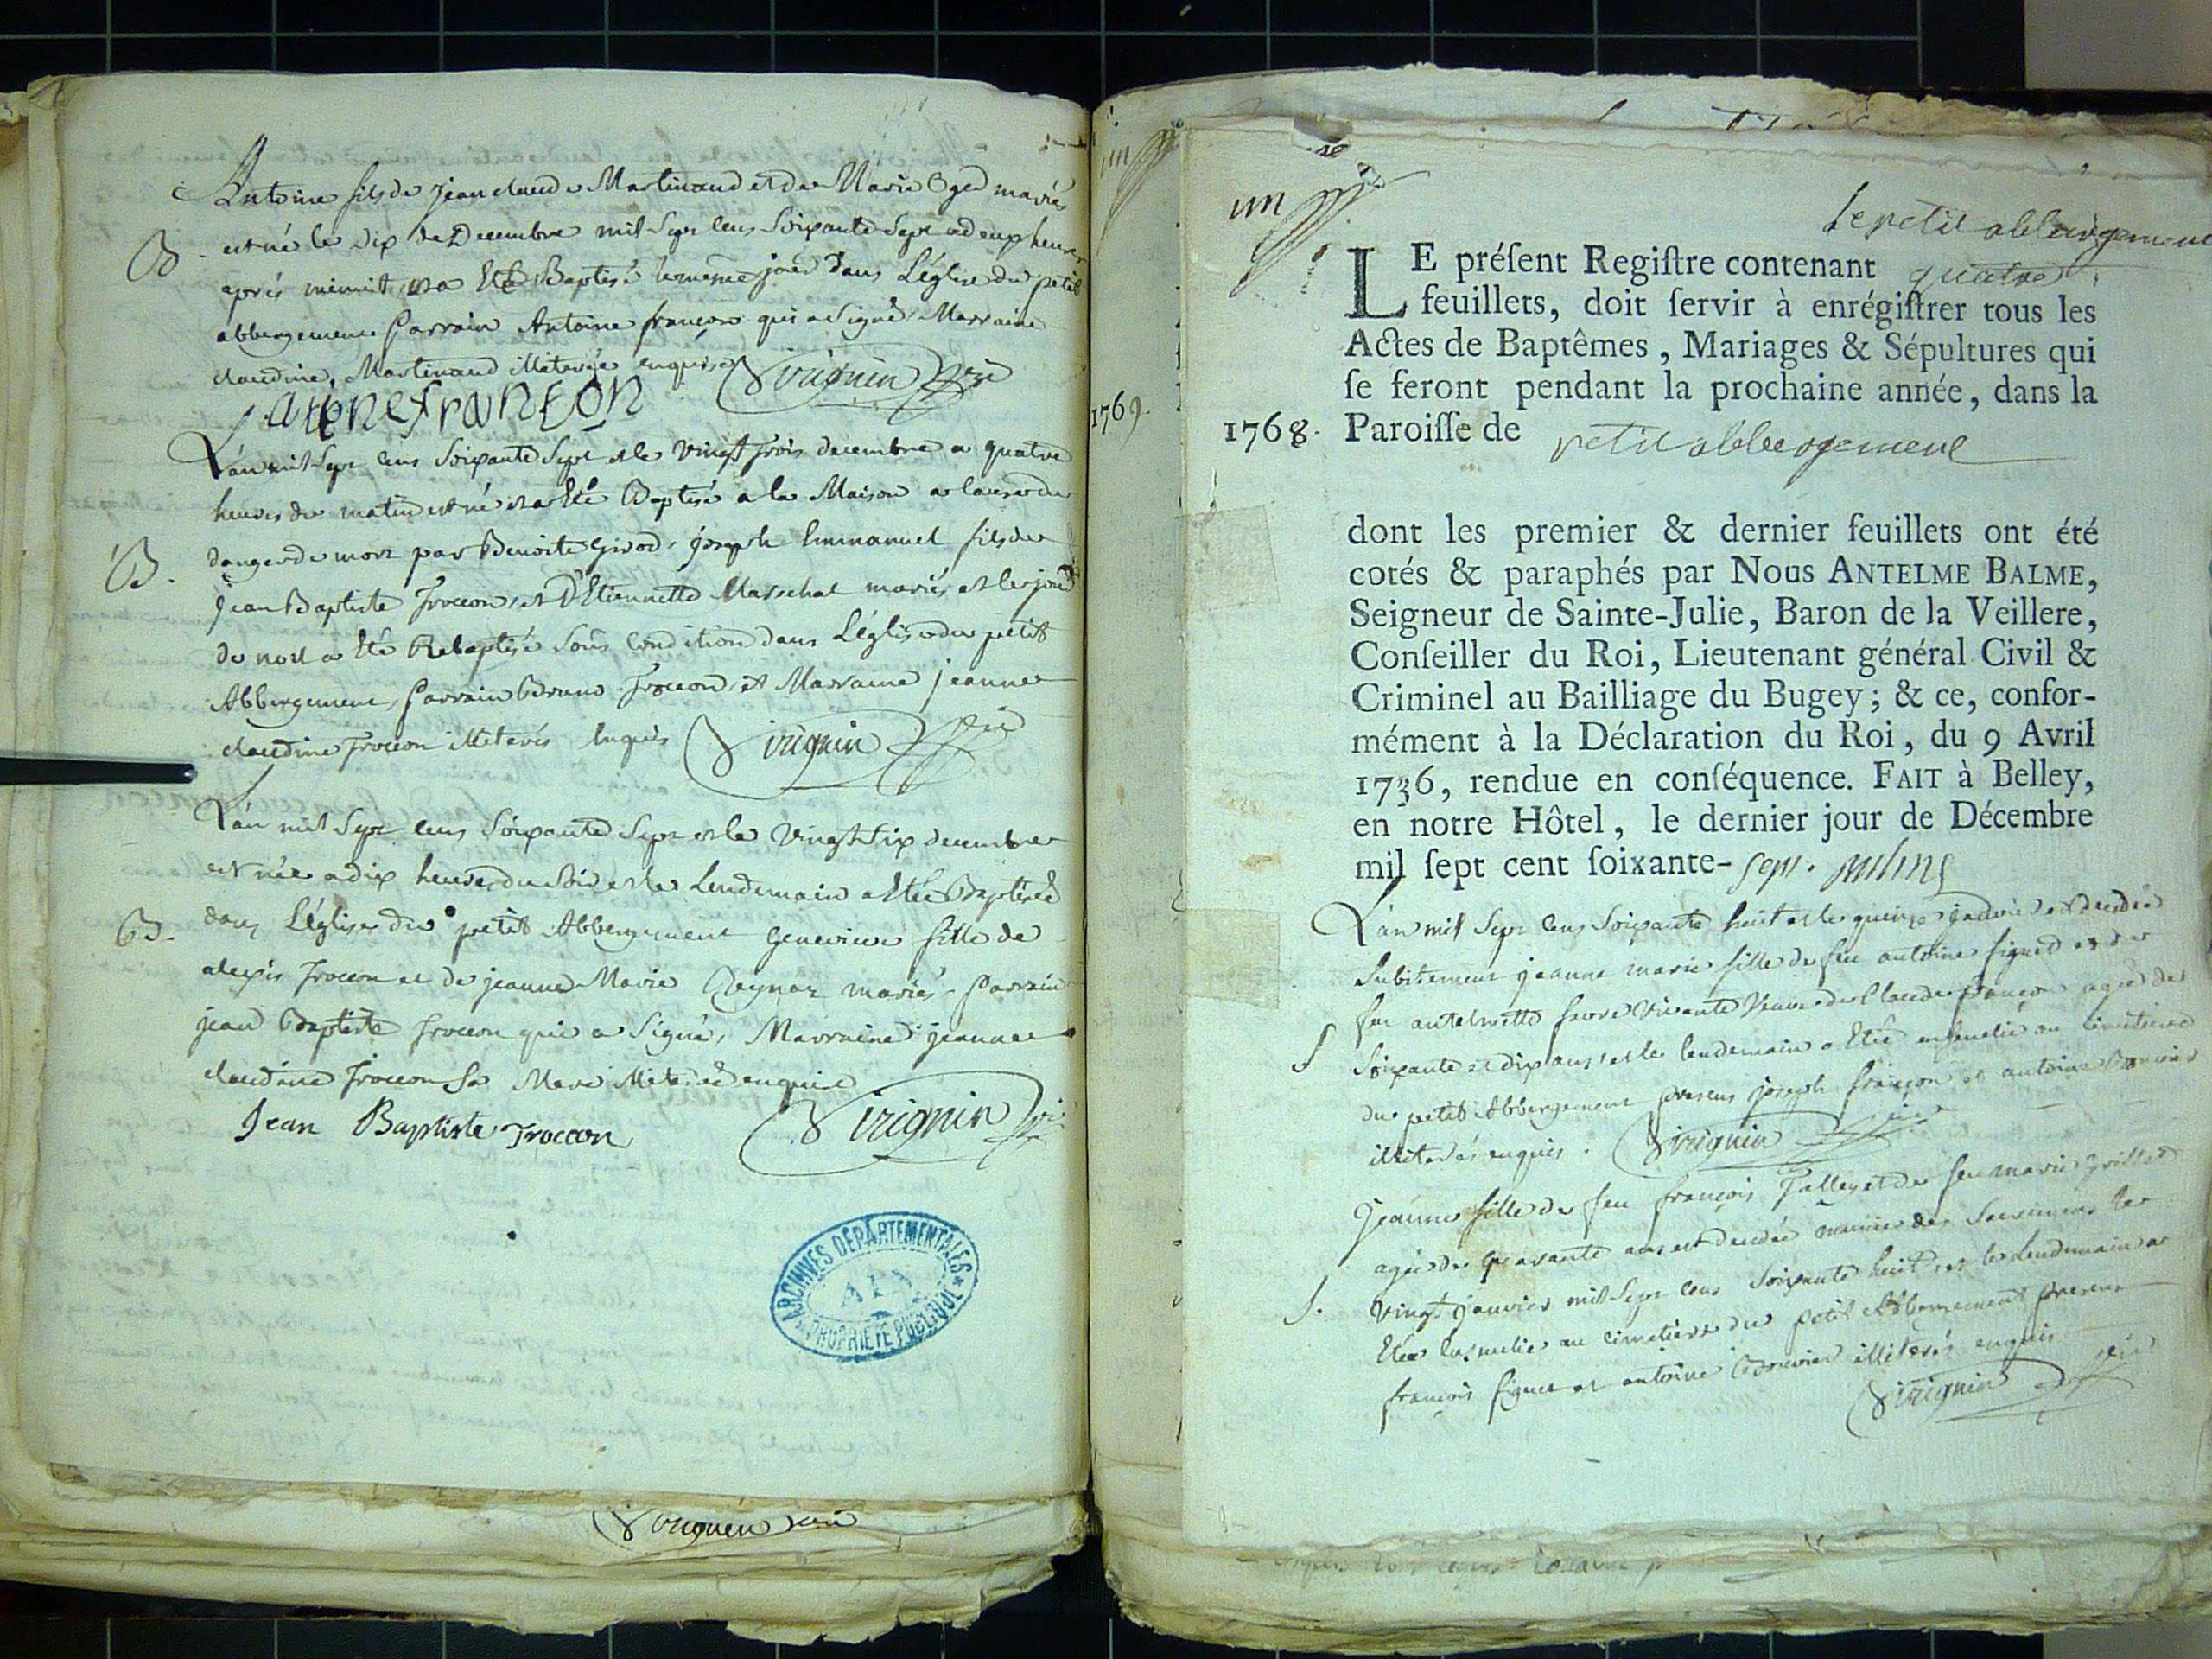 Antoine fils de jean claude Martinand et de Marie Oger mariés
B. est né le dix de Decembre mil Sept cens Soixante Sept a deux heures
après minuit et a Eté Baptisé le meme jour dans L'église du petit
abbergement Parrain Antoine françon qui a Signé, Marraine
claudine Martinand illiterée enquise Virignin
françon
L'an mil Sept cens Soixante Sept et le vingt trois decembre a quatre
heures du matin est né et a Eté Baptisé a la Maison a cause du
B. danger de mort par Benoite Girod, joseph Emmanuel fils de
Jean Baptiste Troccon, et D'Etiennette Marechal mariés et le jour
de noel a Eté Rebaptisé Sous Condition dans L'église du petit
Abbergement, Parrain Bruno Troccon, et Marraine jeanne
claudine Troccon illiterés Enquis Virignin
L'an mil Sept cens Soixante Sept et le vingt Six decembre
est née a dix heures du Soir et le Lendemain a Eté Baptisée
B. dans L'église du petit Abbergement Genevieve fille de
alexis Troccon et de jeanne Marie mariés. Parrain
jean Baptiste Troccon qui a Signé, Marraine jeanne
claudine Troccon Sa illiterée enquise
Jean Baptiste Troccon Virignin
ARCHIVES DÉPARTEMENTALES
AIN
PROPRIÉTÉ PUBLIQUE
Virignin curé
un
1769.
un
le petit abbergement
LE préſent Regiſtre contenant quatre
feuillets, doit ſervir à enrégiſtrer tous les
Actes de Baptêmes, Mariages & Sépultures qui
ſe feront pendant la prochaine année, dans la
1768. Paroiſſe de petit abbergement
dont les premier & dernier feuillets ont été
cotés & paraphés par Nous ANTELME BALME,
Seigneur de Sainte-Julie, Baron de la Veillere,
Conſeiller du Roi, Lieutenant général Civil &
Criminel au Bailliage du Bugey; & ce, confor-
mément à la Déclaration du Roi, du 9 Avril
1736, rendue en conſéquence. FAIT à Belley,
en notre Hôtel, le dernier jour de Décembre
mil ſept cent ſoixante- sept.
L'an mil Sept cens Soixante huit et le quinze janvier est decedée
Subitement jeanne marie fille de feu antoine figuet et de
feu antelmette favre vivante veuve de Claude françon agée de
S Soixante et dix ans, et le lendemain a Eté ensevelie au cimetiere
du petit Abbergement presens joseph françon et antoine Bouvier
illiterés enquis. Virignin
Jeanne fille de feu françois Talley et de feu marie Grillet
agée de quarante ans est decedée munie des Sacremens le
S. vingt janvier mil Sept cens Soixante huit et le Lendemain a
Eté Ensevelie au cimetiere du petit Abbergement presens
françois figuet et antoine Bouvier illiterés enquis
Virignin